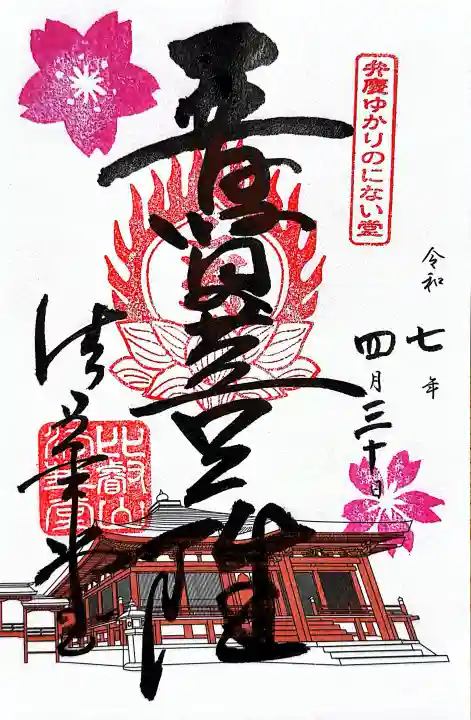 弁慶ゆかりのにない堂
令和七年
四月三十日
普賢菩薩
法華堂
比叡山
法華堂